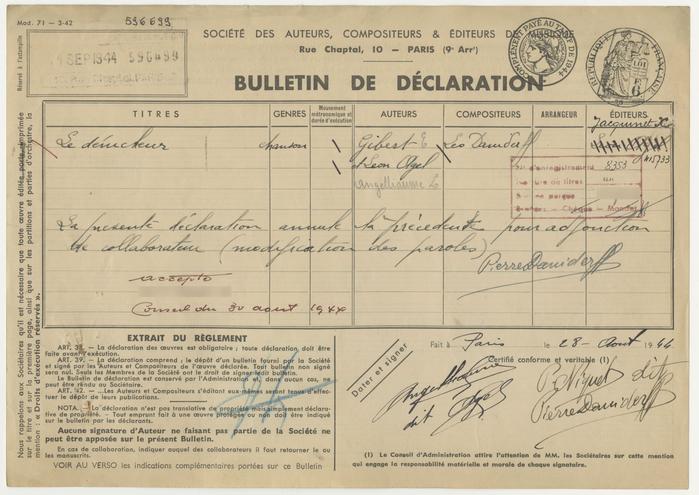 Mod. 71 - 3-42
596699
SOCIÉTÉ DES AUTEURS, COMPOSITEURS & ÉDITEURS DE MUSIQUE
Rue Chaptal, 10 — PARIS (9e Arrt)
Réservé à l'estampille
1 SEP 1944 596699
COMPLÉMENT PAYÉ AU TARIF DE 1944
RÉPUBLIQUE FRANÇAISE
BULLETIN DE DÉCLARATION
TITRES
GENRES
Mouvement métronomique et durée d'exécution
AUTEURS
COMPOSITEURS
ARRANGEUR
ÉDITEURS
Jacquinet
Le dénicheur
chanson
Gibert E
Léo Daniderff
et Léon Agel
Angelliaume L
415733
d'enregistrement 8353
de titres
perçue
Espèces - Chèque - Mandat
La présente déclaration annule la précédente pour adjonction
de collaborateur (modification des paroles)
Pierre Daniderff
accepté
Conseil du 30 aout 1944
Nous rappelons aux Sociétaires qu'il est nécessaire que toute œuvre éditée porte imprimée
sur le titre et sur la première page, ainsi que sur les partitions et parties d'orchestre, la
mention : « Droits d'exécution réservés ».
EXTRAIT DU RÈGLEMENT
ART. 38. — La déclaration des œuvres est obligatoire ; toute déclaration doit être
faite avant l'exécution.
ART. 39. — La déclaration comprend : le dépôt d'un bulletin fourni par la Société
et signé par les Auteurs et Compositeurs de l'œuvre déclarée. Tout bulletin non signé
sera nul. Seuls les Membres de la Société ont le droit de signer ledit bulletin.
Le Bulletin de déclaration est conservé par l'Administration et, dans aucun cas, ne
peut être rendu au Sociétaire.
ART. 42. — Les Auteurs et Compositeurs d'extraits eux-mêmes seront tenus d'effectuer
le dépôt de leurs publications.
NOTA. — La déclaration n'est pas translative de propriété mais simplement déclarative
de propriété. — Tout emprunt fait à une œuvre protégée ou non doit être indiqué
sur le bulletin par les déclarants.
Aucune signature d'Auteur ne faisant pas partie de la Société ne
peut être apposée sur le présent Bulletin.
En cas de collaboration, indiquer auquel des collaborateurs il faut retourner le ou
les manuscrits.
VOIR AU VERSO les indications complémentaires portées sur ce Bulletin
Dater et signer
Fait à Paris le 28 - Aout 1944
Certifié conforme et véritable (1)
Angelliaume
dit Agel
Niquet dit
Pierre Daniderff
(1) Le Conseil d'Administration attire l'attention de MM. les Sociétaires sur cette mention
qui engage la responsabilité matérielle et morale de chaque signataire.